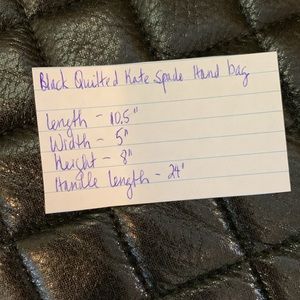 Black Quilted Kate Spade Hand bag
length - 10.5"
Width - 5"
Height - 8"
Handle length - 24"